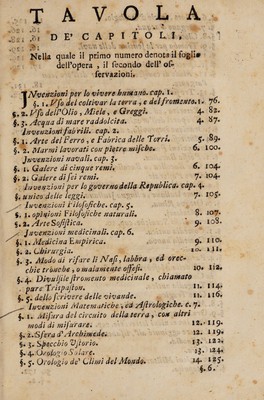 TAVOLA
DE' CAPITOLI,
Nella quale il primo numero denota il foglio
dell'opera, il secondo dell'os-
servazioni.
INvenzioni per lo vivere humano. cap. 1.
§. 1. Vso del coltivar la terra, e del fromento. 1. 76.
§. 2. Vso dell'Olio, Miele, e Greggi. 4. 82.
§. 3. Acqua di mare raddolcita. 4. 87.
Invenzioni fabrili. cap. 2.
§. 1. Arte del Ferro, e Fabrica delle Torri. 5. 89.
§. 2. Marmi lavorati con pietre mische. 6. 100.
Invenzioni navali. cap. 3.
§. 1. Galere di cinque remi. 6. 104.
§. 2. Galere di sei remi. 7. 104.
Invenzioni per lo governo della Republica. cap. 4.
§. unico delle leggi. 7. 105.
Invenzioni Filosofiche. cap. 5.
§. 1. opinioni Filosofiche naturali. 8. 107.
§. 2. Arte Sofistica. 9. 108.
Invenzioni medicinali. cap. 6.
§. 1. Medicina Empirica. 9. 110.
§. 2. Chirurgia. 10. 111.
§. 3. Modo di rifare li Nasi, labbra, ed orec-
chie tronche, o malamente offesi. 10. 112.
§. 4. Divulsile stromento medicinale, chiamato
pure Trispaston. 11. 114.
§. 5. dello scrivere delle vivande. 11. 116.
Invenzioni Matematiche, ed Astrologiche. c. 7.
§. 1. Misura del circuito della terra, con altri
modi di misurare. 12. 119.
§. 2. Sfera d'Archimede. 12. 119.
§. 3. Specchio Vstorio. 13. 123.
§. 4. Orologio Solare. 13. 124.
§. 5. Orologio de' Climi del Mondo. 14. 125.
§. 6.